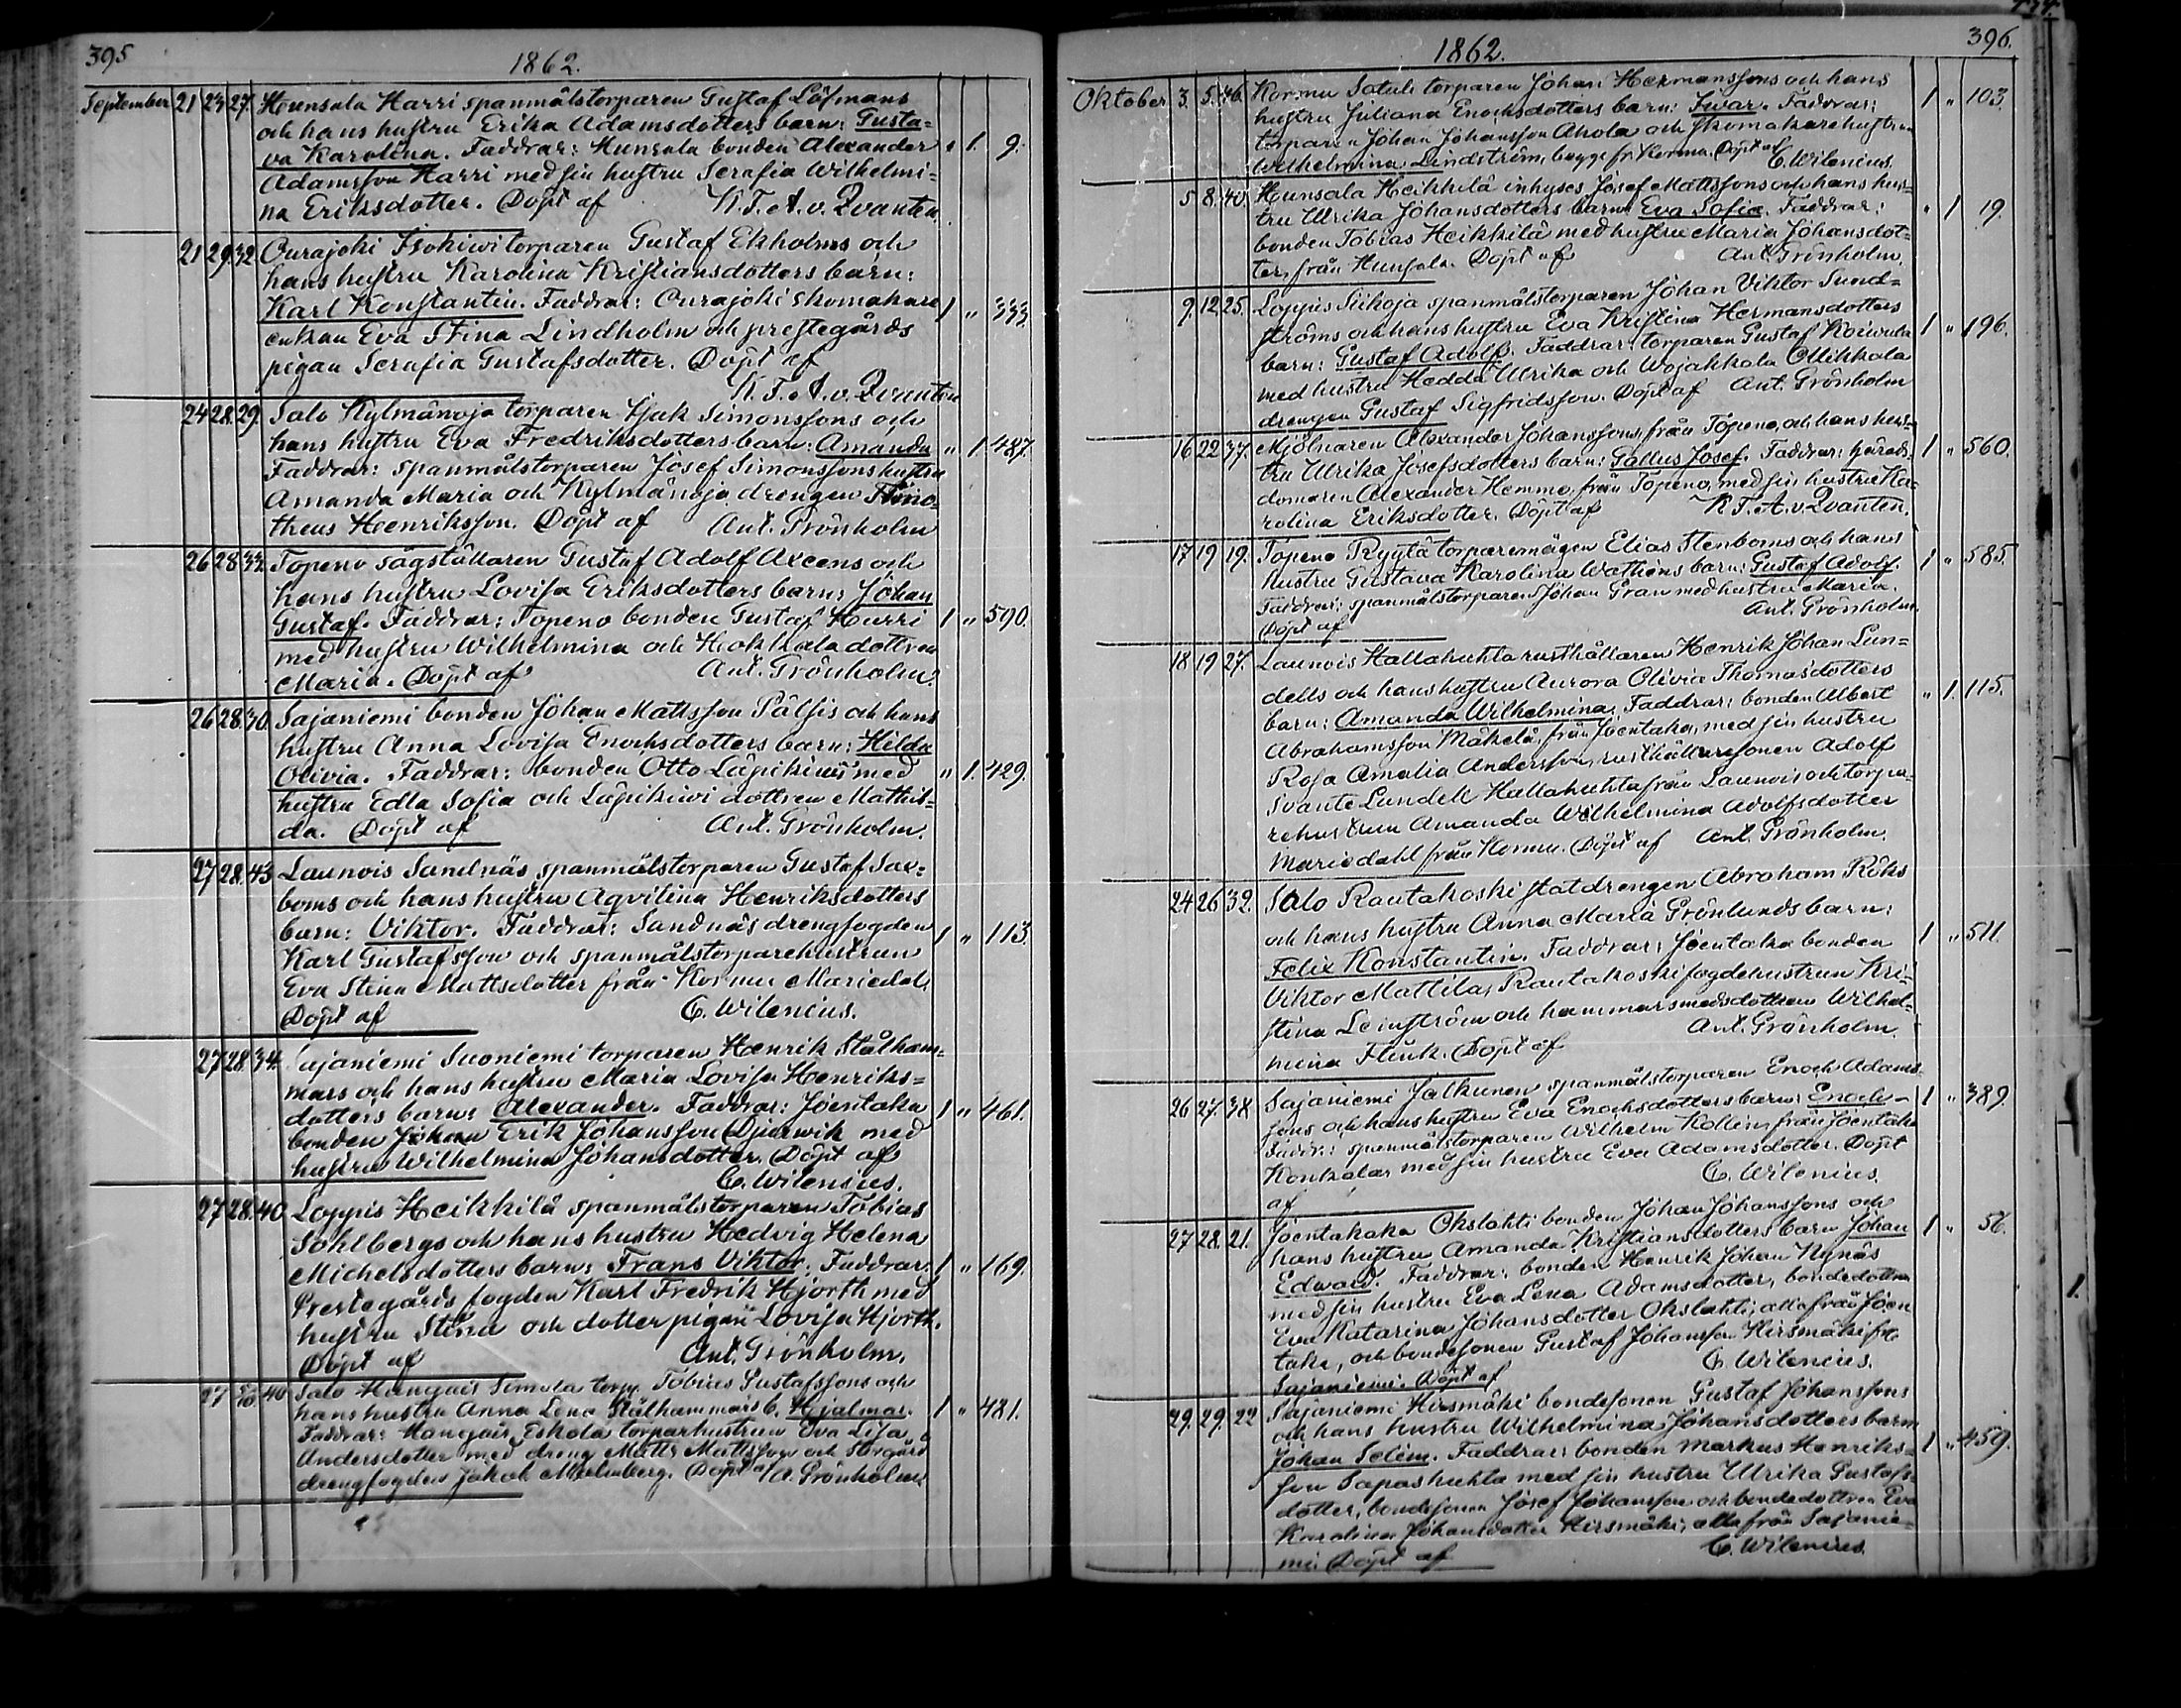 395
1862.
September 21 23 27. Hunsala Harri spanmålstorparen Gustaf Löfmans
och hans hustru Erika Adamsdotters barn: Gusta=
va Karolina. Faddrar: Hunsala bonden Alexander " 1. 9.
Adamsson Harri med sin hustru Serafia Wilhelmi=
na Eriksdotter. Döpt af K.T.A.v. Qvanten
21 29 32. Ourajoki Isokiwi torparen Gustaf Ekholms och
hans hustru Karolina Kristiansdotters barn:
Karl Konstantin. Faddrar: Ourajoki skomakare 1 " 333.
enkan Eva Stina Lindholm och prestegårds
pigan Serafia Gustafsdotter. Döpt af
K.T.A.v. Qvanten
24 28. 29. Salo Kylmänoja torparen Isak Simonssons och
hans hustru Eva Fredriksdotters barn: Amanda " 1. 487.
Faddrar: spanmålstorparen Josef Simonssons hustru
Amanda Maria och Kylmänoja drengen Timo=
theus Henriksson. Döpt af Ant. Grönholm
26 28 33. Topeno sågställaren Gustaf Adolf Axcens och
hans hustru Lovisa Eriksdotters barn: Johan
Gustaf. Faddrar: Topeno bonden Gustaf Hurri 1 " 590.
med hustru Wilhelmina och Hokkala dottren
Maria. Döpt af Ant. Grönholm.
26 28. 30. Sajaniemi bonden Johan Mattsson Pålsis och hans
hustru Anna Lovisa Enochsdotters barn: Hilda
Olivia. Faddrar: bonden Otto Läpikiwi med " 1. 429.
hustru Edla Sofia och Läpikiwi dottren Mathil=
da. Döpt af Ant. Grönholm.
27 28. 43 Launois Sandnäs spanmålstorparen Gustaf Sax=
boms och hans hustru Aqvilina Henriksdotters
barn: Viktor. Faddrar: Sandnäs drengfogden 1 " 113.
Karl Gustafsson och spanmålstorparehustrun
Eva Stina Mattsdotter från Kormu Mariedal.
Döpt af C. Wilenius.
27 28. 34. Sajaniemi Suoniemi torparen Henrik Stålham=
mars och hans hustru Maria Lovisa Henriks=
dotters barn: Alexander. Faddrar: Joentaka 1 " 461.
bonden Johan Erik Johansson Djurwik med
hustru Wilhelmina Johansdotter. Döpt af
C. Wilenius.
27 28. 40 Loppis Heikkilä spanmålstorparen Tobias
Sohlbergs och hans hustru Hedvig Helena
Michelsdotters barn: Frans Viktor. Faddrar: 1 " 169.
Prestegårds fogden Karl Fredrik Hjorth med
hustru Stina och dotter pigan Lovisa Hjorth.
Döpt af Ant. Grönholm.
27 40 Salo Mangais Simola torp. Tobias Gustafssons och
hans hustru Anna Lena Stålhammars b. Hjalmar. 1 " 481.
Faddrar: Mangais Eskola torparhustrun Eva Lisa
Andersdotter med dreng Matts Mattsson och Storgård
drengfogden Jakob Malmberg. Döpt af A. Grönholm
396.
1862.
Oktober 3. 5. 46. Kormu Satuli torparen Johan Hermanssons och hans
hustru Juliana Enochsdotters barn: Iwar. Faddrar: 1 " 103.
torparen Johan Johansson Ahola och skomakarehustrun
Wilhelmina Lindström, begge fr. Kormu. Döpt af C. Wilenius
5 8. 40. Hunsala Heikkilä inhyses Josef Mattssons och hans hus=
tru Ulrika Johansdotters barn: Eva Sofia. Faddrar: " 1 19.
bonden Tobias Heikkilä med hustru Maria Johansdot=
ter, från Hunsala. Döpt af Ant. Grönholm.
9. 12. 25. Loppis Siikoja spanmålstorparen Johan Viktor Sund=
ströms och hans hustru Eva Kristina Hermansdotters
barn: Gustaf Adolf. Faddrar: torparen Gustaf Koiwula 1 " 196.
med hustru Hedda Ulrika och Wojakkala Mikkola
drengen Gustaf Sigfridsson. Döpt af Ant. Grönholm
16 22 37. Mjölnaren Alexander Johanssons, från Topeno, och hans hus=
tru Ulrika Josefsdotters barn: Gallus Josef. Faddrar: härads= 1 " 560.
domaren Alexander Hemmo, från Topeno, med sin hustru Ka=
rolina Eriksdotter. Döpt af K.T.A.v. Qvanten.
17 19 19. Topeno Ryytä torparemågen Elias Stenboms och hans
hustru Gustava Karolina Wathéns barn: Gustaf Adolf. 1 " 585.
Faddrar: spanmålstorparen Johan Gran med hustru Maria.
Döpt af Ant. Grönholm.
18 19 27. Launois Hallakuhta rusthållaren Henrik Johan Lun=
dells och hans hustru Aurora Olivia Thomasdotters
barn: Amanda Wilhelmina. Faddrar: bonden Albert " 1. 115.
Abrahamsson Mäkelä, från Joentaka, med sin hustru
Rosa Amalia Andersson, rusthållaresonen Adolf
Svante Lundell Hallakuhta från Launois och torpa=
rehustrun Amanda Wilhelmina Adolfsdotter
Mariedahl från Kormu. Döpt af Ant. Grönholm.
24 26 32. Salo Rautakoski statdrengen Abraham Röks
och hans hustru Anna Maria Grönlunds barn:
Felix Konstantin. Faddrar: Joentaka bonden 1 " 511.
Viktor Mattila, Rautakoski fogdehustrun Kri=
stina Leinström och hammarsmedsdottren Wilhel=
mina Flink. Döpt af Ant. Grönholm.
26 27. 38 Sajaniemi Jalkunen spanmålstorparen Enoch Adams=
sons och hans hustru Eva Enochsdotters barn: Enoch – 1 " 389.
Faddr: spanmålstorparen Wilhelm Kollin, från Joentaka
Konkala, med sin hustru Eva Adamsdotter. Döpt
af C. Wilenius.
27 28. 21. Joentakaka Okslahti bonden Johan Johanssons och
hans hustru Amanda Kristiansdotters barn Johan 1 " 56.
Edward. Faddrar: bonden Henrik Johan Nynäs
med sin hustru Eva Lena Adamsdotter, bondedottren
Eva Katarina Johansdotter Okslahti, alla från Joen
taka, och bondesonen Gustaf Johansson Hirsmäki fr.
Sajaniemi. Döpt af C. Wilenius.
29. 29. 22 Sajaniemi Hirsmäki bondesonen Gustaf Johanssons
och hans hustru Wilhelmina Johansdotters barn
Johan Selim. Faddrar: bonden Markus Henriks= 1 " 459.
son Sapashuhta med sin hustru Ulrika Gustafs=
dotter, bondesonen Josef Johansson och bondedottren Eva
Karolina Johansdotter Hirsmäki, alla från Sajanie=
mi. Döpt af C. Wilenius.